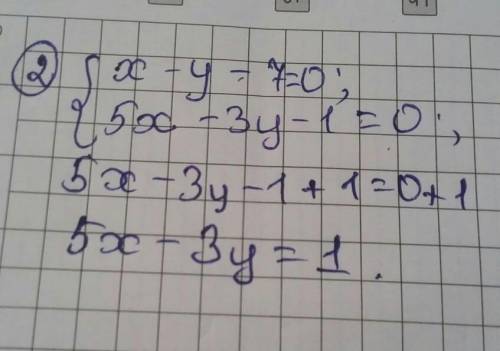 ② { x - y - 7 = 0 ;
5x - 3y - 1 = 0 ;
5x - 3y - 1 + 1 = 0 + 1
5x - 3y = 1 .